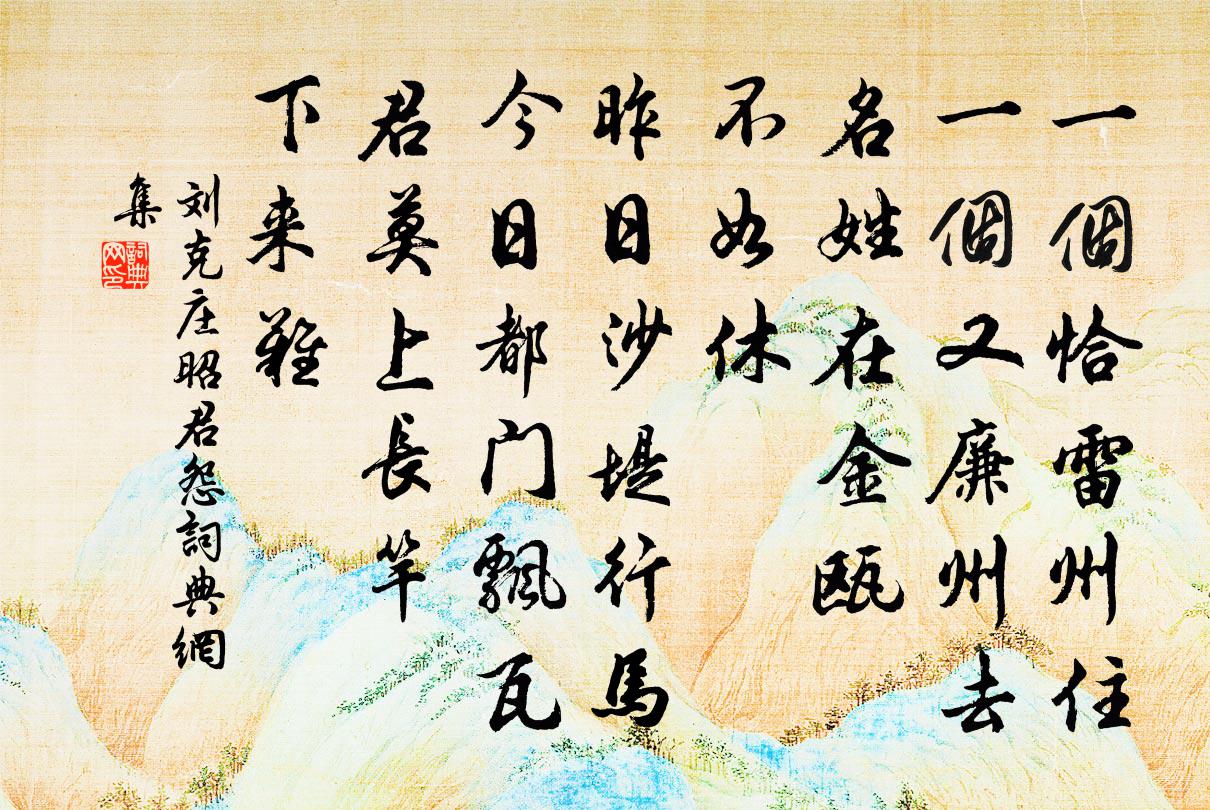 一個恰雷州住
一個又廉州去
名姓在金瓯
不如休
昨日沙堤行馬
今日都门飄瓦
君莫上長竿
下来難
刘克庄昭君怨詞典網
集
詞典
网印